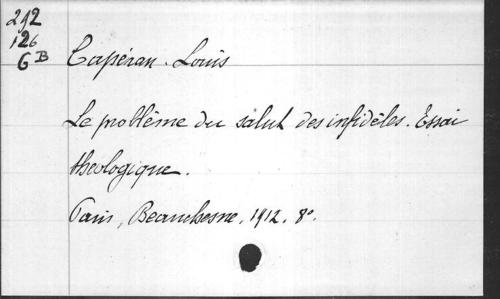 242
126
6B
Capéran. Louis
Le problème du salut des infidèles. Essai
theologique.
Paris, Beauchesne, 1912. 8°.